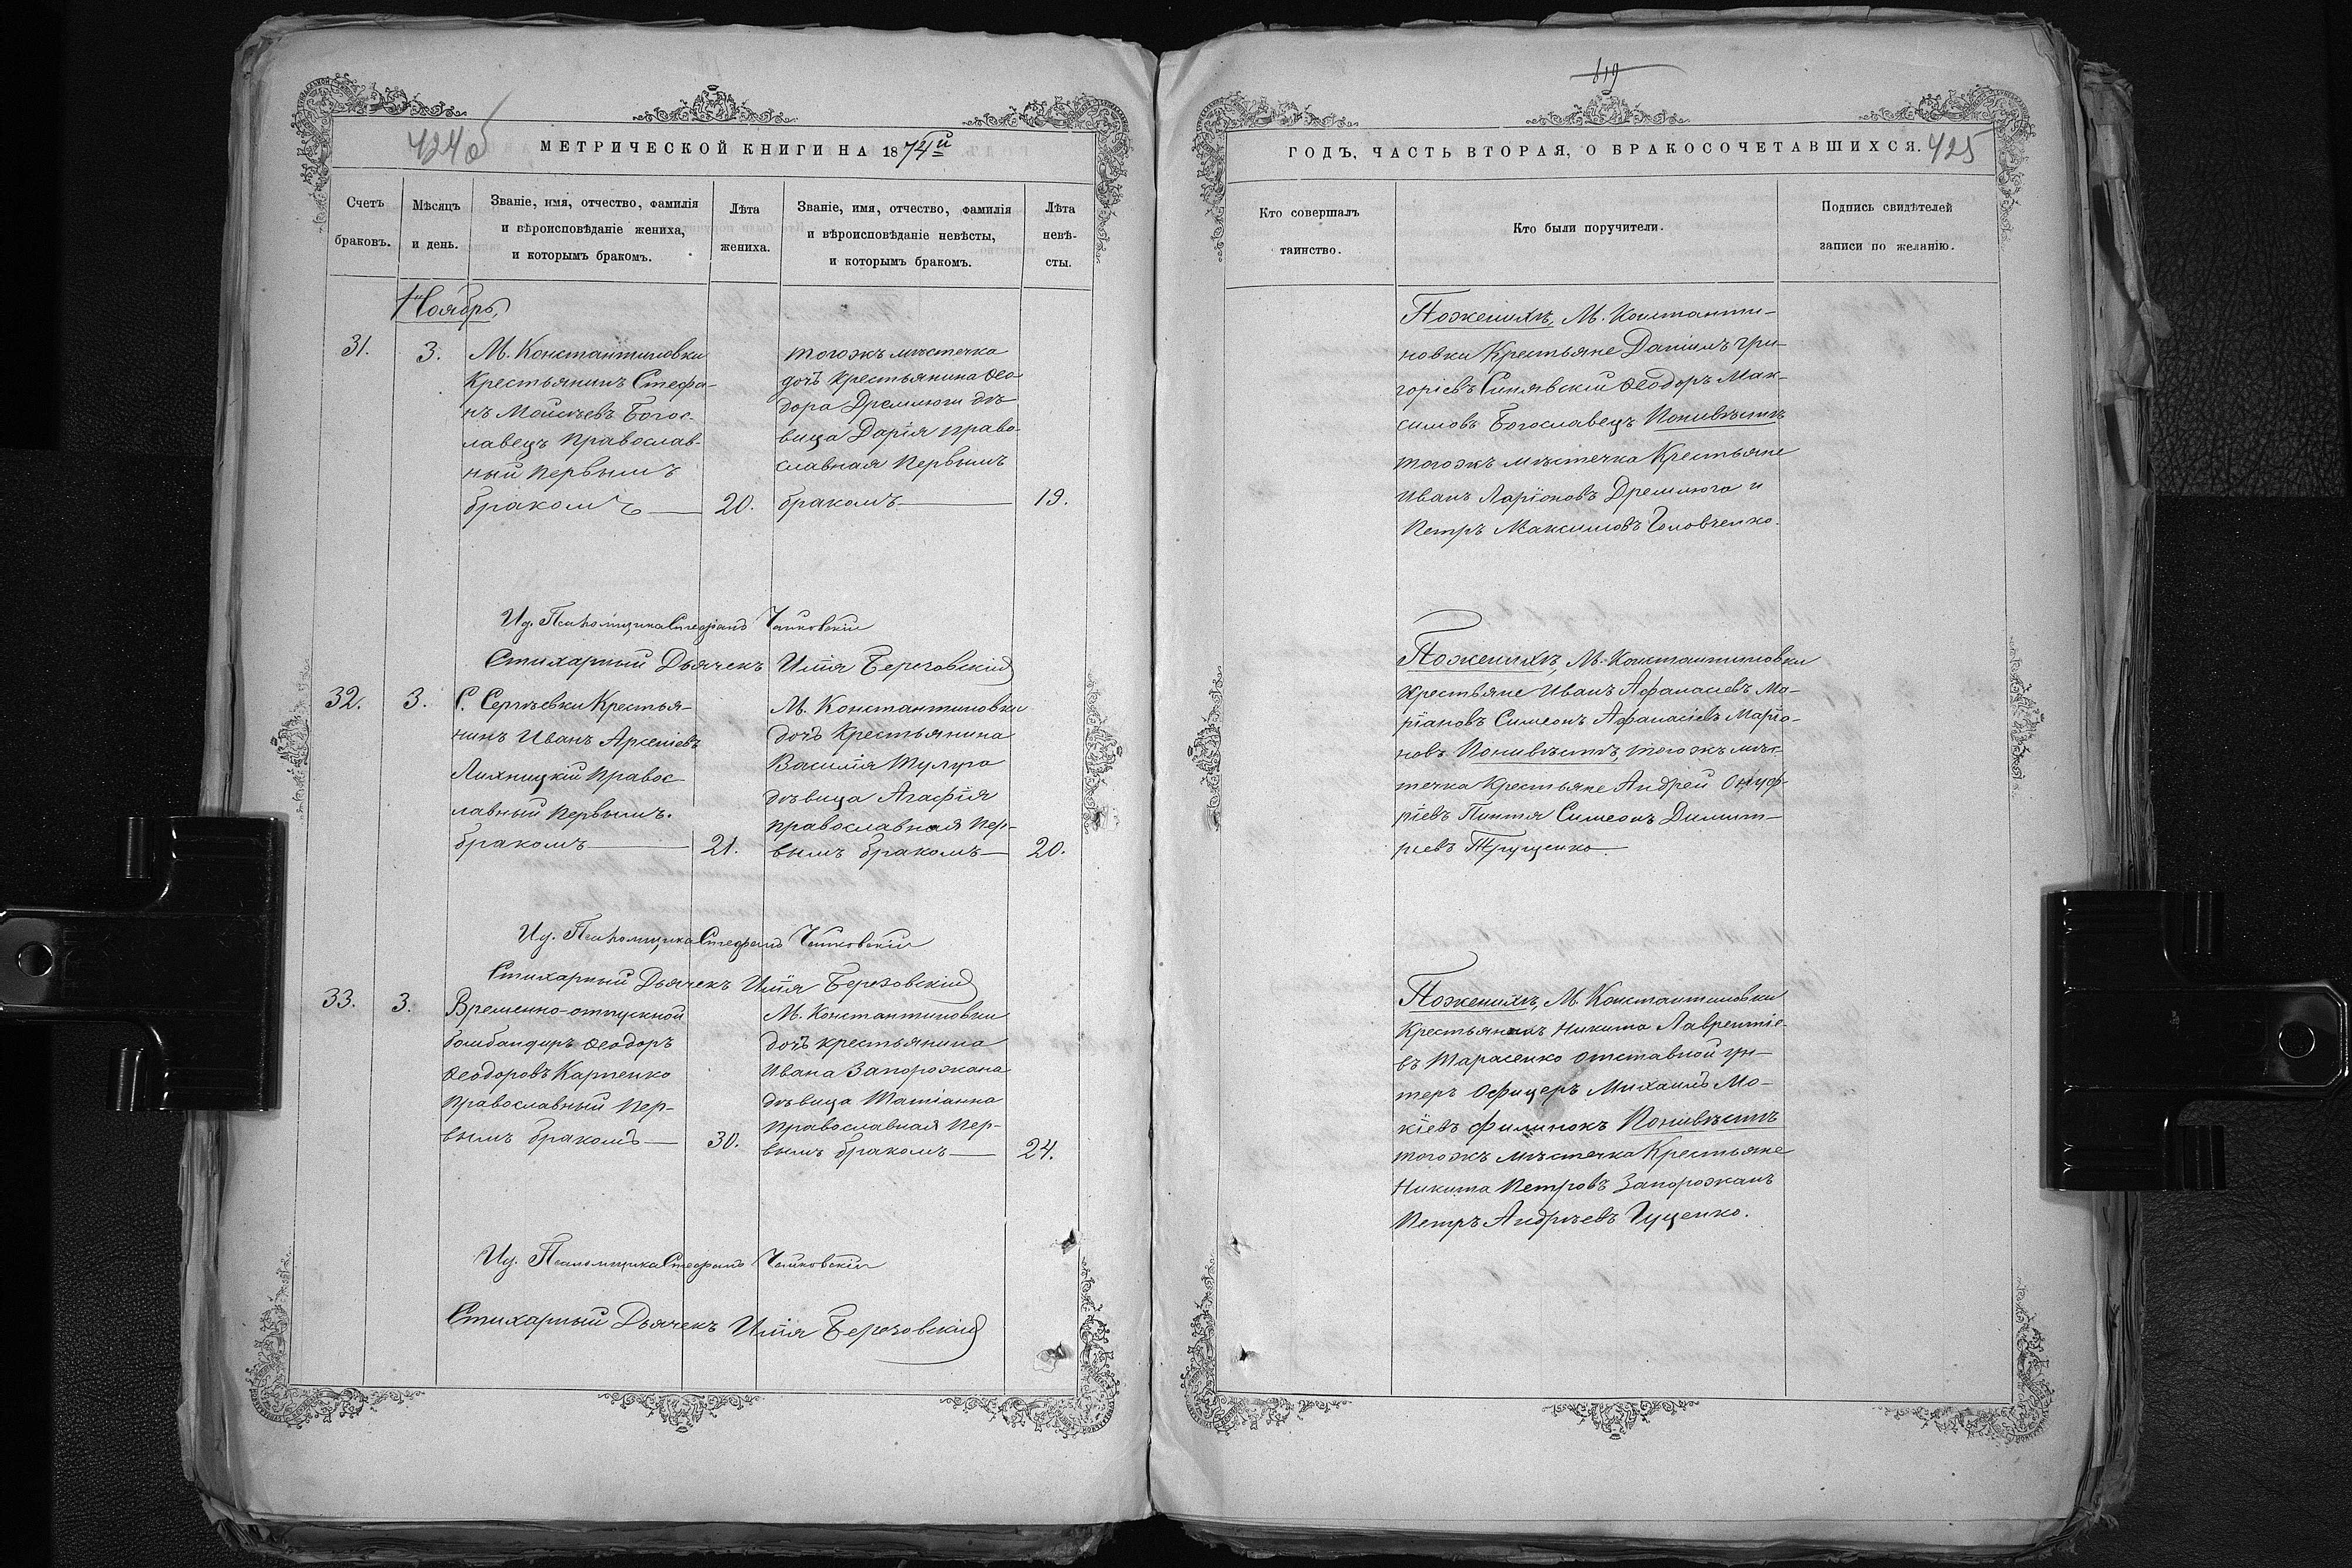 424об
МЕТРИЧЕСКОЙ КНИГИ НА 1874й
Счетъ браковъ.
Мѣсяцъ и день.
Званіе, имя, отчество, фамилія
и вѣроисповѣданіе жениха,
и которымъ бракомъ.
Лѣта
жениха.
Званіе, имя, отчество, фамилія
и вѣроисповѣданіе невѣсты,
и которымъ бракомъ.
Лѣта
невѣ-
сты.
Ноябрь,
31.
3.
М. Константиновки
Крестьянинъ Стефа-
нъ Моисѣевъ Богос-
лавецъ православ-
ный первымъ
бракомъ
20.
тогожъ мѣстечка
дочь крестьянина Ѳео-
дора Дремлюги дѣ-
вица Дарія право-
славная первымъ
бракомъ
19.
Ид. Псаломщика Стефанъ Чайковскій
Стихарный Дьячекъ Илія Березовскій
32.
3.
С. Сергѣевки Крестья-
нинъ Иванъ Арсеніевъ
Лихницкій правос-
лавный первымъ.
бракомъ
21.
М. Константиновки
дочь Крестьянина
Василія Тулупа
дѣвица Агафія
православная пер-
вымъ бракомъ
20.
Ид. Псаломщика Стефанъ Чайковскій
Стихарный Дьячекъ Илія Березовскій
33.
3.
Временно-отпускной
бомбандиръ Ѳеодоръ
Ѳеодоровъ Карпенко
православный пер-
вымъ бракомъ
30.
М. Константиновки
дочь крестьянина
Ивана Запорожана
дѣвица Татіанна
православная пер-
вымъ бракомъ
24.
Ид. Псаломщика Стефанъ Чайковскій
Стихарный Дьячекъ Илія Березовскій
619
ГОДЪ, ЧАСТЬ ВТОРАЯ, О БРАКОСОЧЕТАВШИХСЯ.
425
Кто совершалъ
таинство.
Кто были поручители.
Подпись свидѣтелей
записи по желанію.
Поженихѣ, М. Константи-
новки Крестьяне Даніилъ Гри-
горіевъ Синявскій Ѳеодоръ Мак-
симовъ Богославецъ Поневѣстѣ
тогожъ мѣстечка Крестьяне
Иванъ Ларіоновъ Дремлюга и
Петръ Максимовъ Головченко.
Поженихѣ, М. Константиновки
Крестьяне Иванъ Афанасіевъ Ма-
ріановъ Симеонъ Афанасіевъ Марія-
новъ Поневѣстѣ, тогожъ мѣс-
течка Крестьяне Андрей Онуф-
ріевъ Пинтя Симеонъ Димит-
ріевъ Трущенко.
Поженихѣ, М. Константиновки
Крестьянинъ Никита Лаврентіе-
въ Тарасенко отставной ун-
теръ офицеръ Михаилъ Мо-
кіевъ Филинокъ Поневѣстѣ
тогожъ мѣстечка Крестьяне
Никита Петровъ Запорожанъ
Петръ Андреевъ Гуценко.